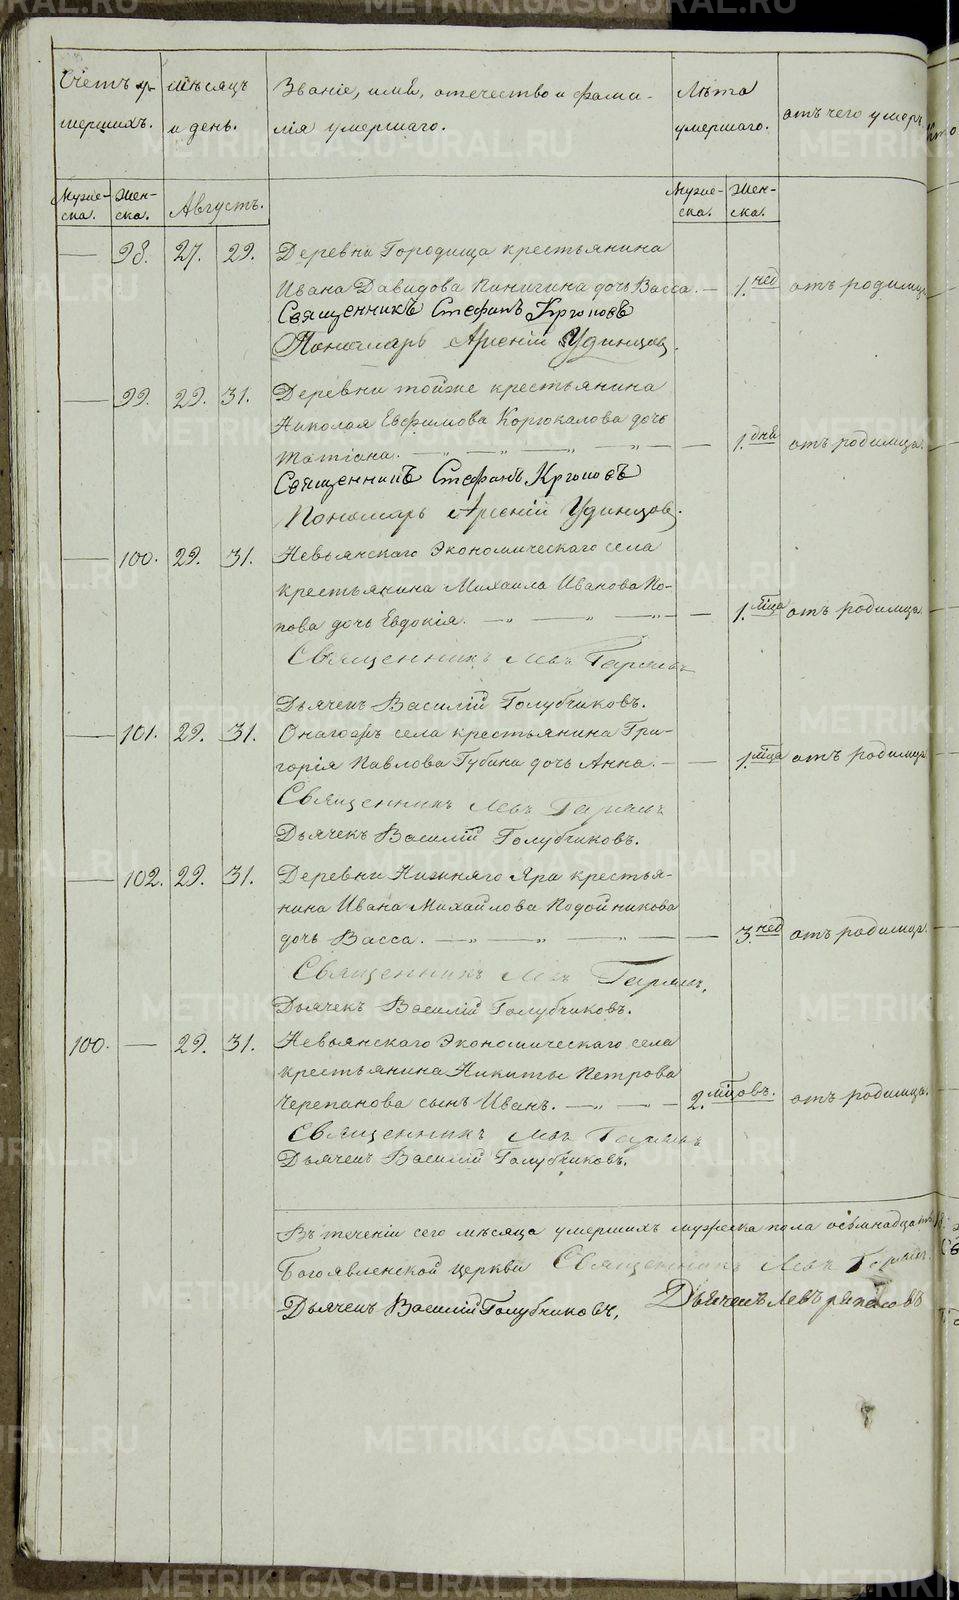 METRIKI.GASO-URAL.RU
Счетъ у- мѣсяцъ Званіе, имя, отечество и фами- Лѣта отъ чего умеръ
мершихъ. и день. лія умершаго. умершаго.
Муже- Жен- Августъ. Муже- Жен-
ска. ска. ска. ска.
— 98. 27. 29. Деревни Городища крестьянина
Ивана Давидова Кинигина дочь Васса. — 1. нед отъ родимца
Священникъ Стефанъ Крюковъ
Пономарь Арсеній Удинцов.
— 99. 29. 31. Деревни тойже крестьянина
Николая Евфимова Корюкалова дочь
Татіана. — 1. дня отъ родимца.
Священникъ Стефанъ Крюковъ
Пономарь Арсеній Удинцов.
— 100. 29. 31. Невьянскаго Экономическаго села
крестьянина Михаила Иванова По-
пова дочь Евдокія. — 1. мца отъ родимца
Священникъ Левъ
Дьячекъ Василій Голубчиковъ.
— 101. 29. 31. Онагожъ села крестьянина Гри-
горія Павлова Губина дочь Анна. — 1. мца отъ родимца
Священникъ Левъ
Дьячекъ Василій Голубчиковъ.
— 102. 29. 31. Деревни Нижняго Яра крестья-
нина Ивана Михайлова Подойникова
дочь Васса. — 3. нед отъ родимца.
Священникъ Левъ
Дьячекъ Василій Голубчиковъ.
100. — 29. 31. Невьянскаго Экономическаго села
крестьянина Никиты Петрова
Черепанова сынъ Иванъ. — 2. мцовъ. отъ родимца.
Священникъ Левъ
Дьячекъ Василій Голубчиковъ.
Въ теченіи сего мѣсяца умершихъ мужеска пола осьмнадцать
Богоявленской церкви Священникъ Левъ
Дьячекъ Василій Голубчиковъ, Дьячекъ Левъ